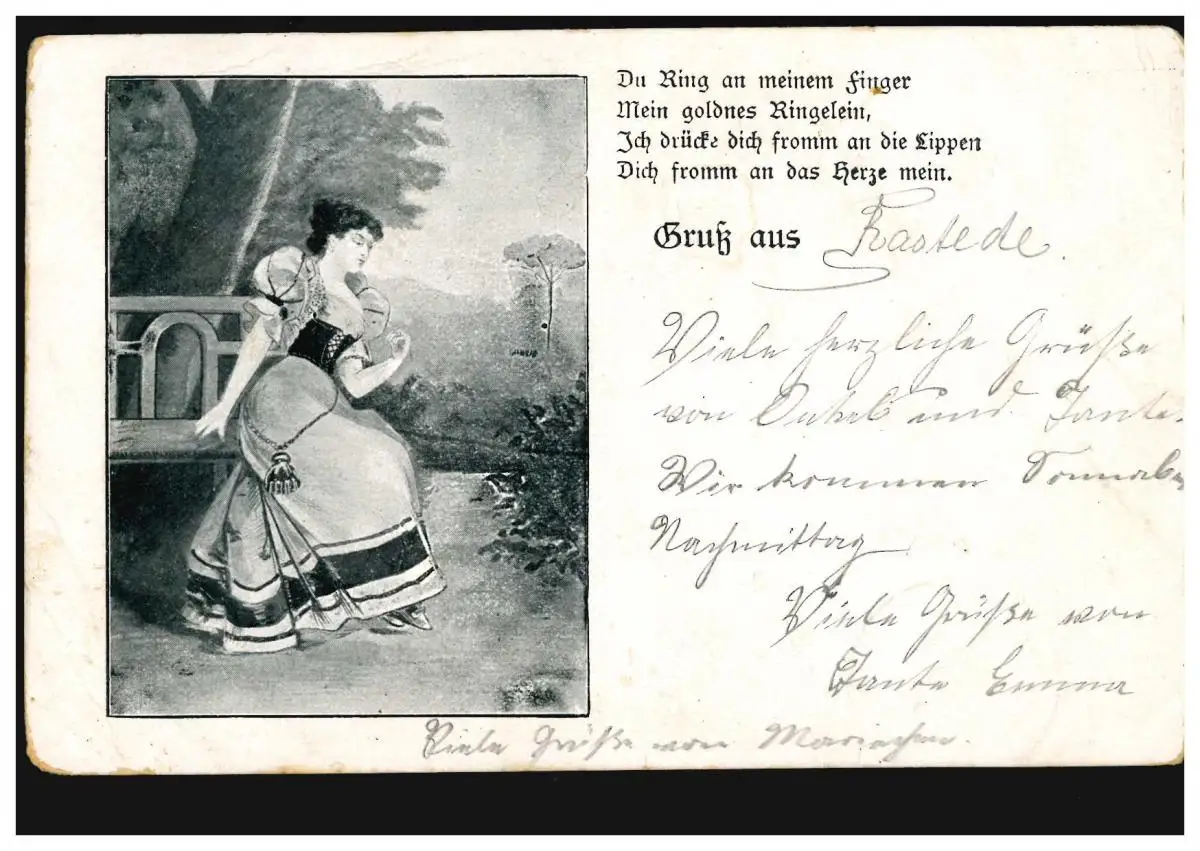 Du Ring an meinem Finger
Mein goldnes Ringelein,
Ich drücke dich fromm an die Lippen
Dich fromm an das Herze mein.
Gruß aus Rastede.
Viele herzliche Grüße
von Onkel und Tante.
Wir kommen Sonnabe
Nachmittag
Viele Grüße von
Tante Emma
Viele Grüße von Mariechen.